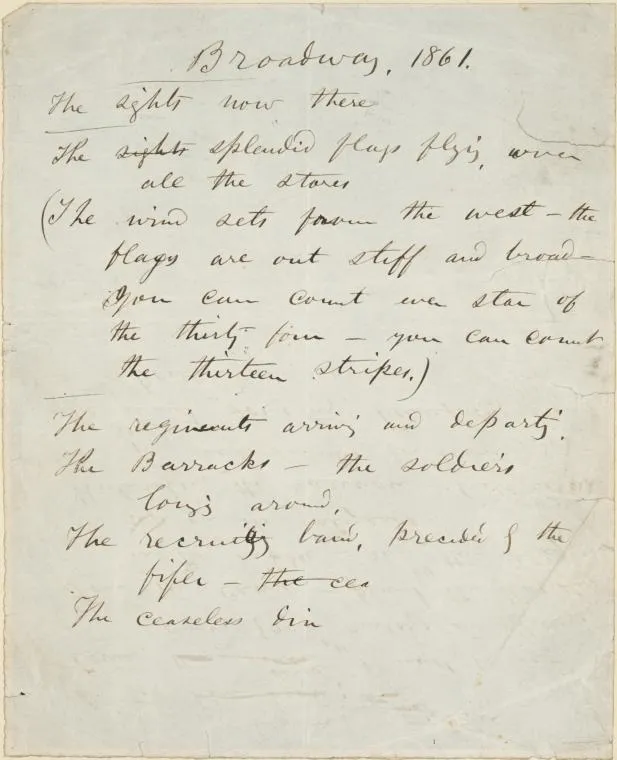 Broadway, 1861.
The sights now there
The sights splendid flags flying over
all the stores
(The wind sets from the west – the
flags are out stiff and broad –
You can count every star of
the thirty four – you can count
the thirteen stripes.)
The regiments arriving and departing,
The Barracks – the soldiers
lounging around,
The recruiting band, preceded by the
fifer – the cea
The ceaseless din